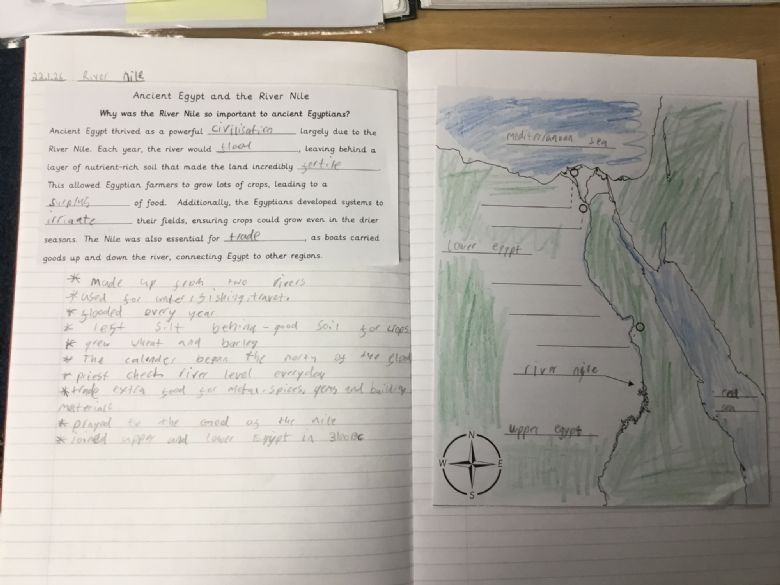 22.1.26 River Nile
Ancient Egypt and the River Nile
Why was the River Nile so important to ancient Egyptians?
Ancient Egypt thrived as a powerful civilisation largely due to the
River Nile. Each year, the river would flood, leaving behind a
layer of nutrient-rich soil that made the land incredibly fertile
This allowed Egyptian farmers to grow lots of crops, leading to a
surplus of food. Additionally, the Egyptians developed systems to
irrigate their fields, ensuring crops could grow even in the drier
seasons. The Nile was also essential for trade, as boats carried
goods up and down the river, connecting Egypt to other regions.
* made up from two rivers
* used for water, fishing, travel.
* flooded every year
* left silt behing - good soil for crops
* grew wheat and barley
* The calander began the north of the flood
* priest check river level everyday
* trade extra food for metal, spices, gems and building
materials
* prayed to the God of the nile
* joined upper and lower Egypt in 3100BC
mediterranean sea
lower egypt
river nile
red
sea
upper egypt
N
W
E
S